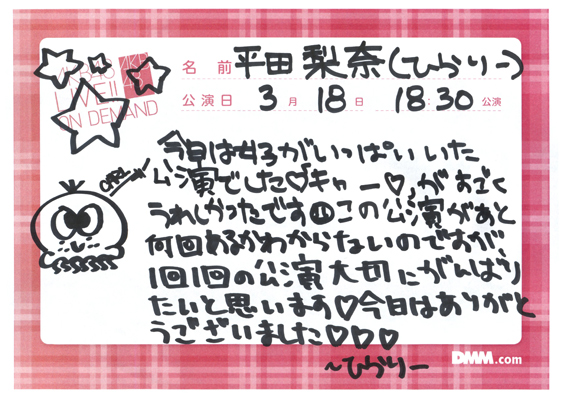 AKB48
LIVE!!
ON DEMAND
名前 平田梨奈(ひらりー)
公演日 3月18日 18:30公演
今日は女子がいっぱいいた
公演でした♡"キャー♡"がすごく
うれしかったです この公演があと
何回あるかわからないのですが、
1回1回の公演大切にがんばり
たいと思います♡今日はありがと
うございました♡♡♡
~ひらりー
DMM.com